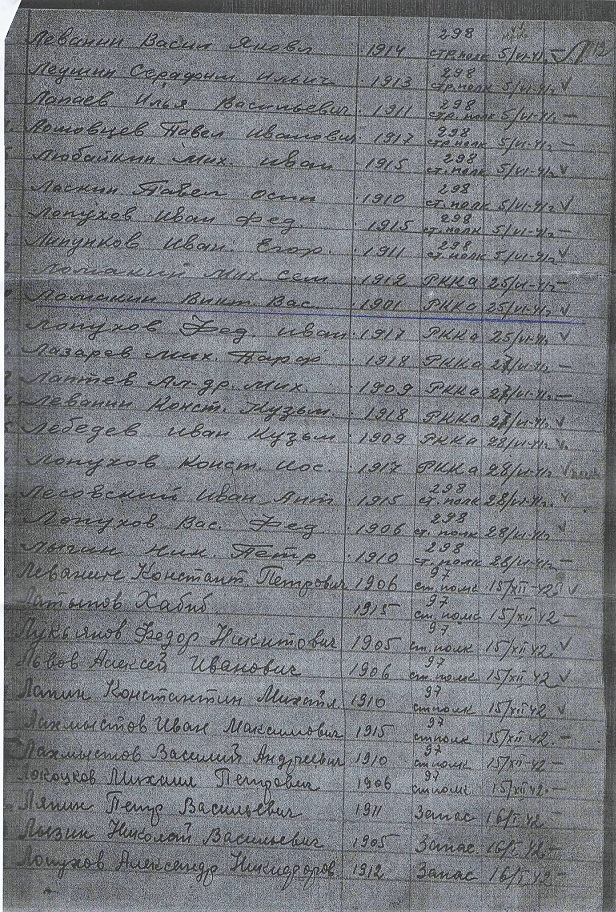 Леванин Васил Яковл 1914 298 стр.полк 5/VI-41г. — V
Леушин Серафим Ильич 1913 298 стр.полк 5/VI-41г. V
Лапаев Илья Васильевич 1911 298 стр.полк 5/VI-41г. —
Лотовцев Павел Иванович 1917 298 стр.полк 5/VI-41г. —
Любайкин Мих. Иван 1915 298 ст.полк 5/VI-41г. V
Ласкин Павел Осип 1910 298 ст.полк 5/VI-41г. V
Лопухов Иван Фед. 1915 298 ст.полк 5/VI-41г. —
Липунков Иван Егор. 1911 298 ст.полк 5/VI-41г. V
Ломакин Мих. Сем 1912 РККА 25/VI-41г. —
Ломакин Викт. Вас. 1901 РККА 25/VI-41г. V
Лопухов Фед Иван 1917 РККА 25/VI-41г. V
Лазарев Мих. Парф 1918 РККА 27/VI-41г. —
Лаптев Ал-др. Мих. 1909 РККА 27/VI-41г. —
Леванин Конст. Кузьм. 1918 РККА 27/VI-41г. V
Лебедев Иван Кузьм. 1909 РККА 28/VI-41г. V
Лопухов Конст. Иос. 1917 РККА 28/VI-41г. V
Лесовский Иван Ант. 1915 298 ст.полк 28/VI-41г. V
Лопухов Вас. Фед 1906 298 ст.полк 28/VI-41г. V
Лычин Ник. Петр 1910 298 ст.полк 28/VI-41г. —
Леванин Константин Петрович 1906 97 ст.полк 15/XII-42 V
Латыпов Хабиб 1915 97 ст.полк 15/XII 42 —
Лукьянов Федор Никитович 1905 97 ст.полк 15/XII 42 V
Львов Алексей Иванович 1906 97 ст.полк 15/XII 42 V
Лапин Константин Михайл 1910 97 ст.полк 15/XII 42 V
Лахмыстов Иван Максимович 1915 97 ст.полк 15/XII 42. —
Лахмыстов Василий Андреевич 1910 97 ст.полк 15/XII 42 —
Локоцков Михаил Петрович 1906 97 ст.полк 15/XII 42. —
Ляпин Петр Васильевич 1911 Запас 16/I 42 —
Лызин Николай Васильевич 1905 Запас 16/I 42 —
Лопухов Александр Никифоров 1912 Запас 16/I 42 —